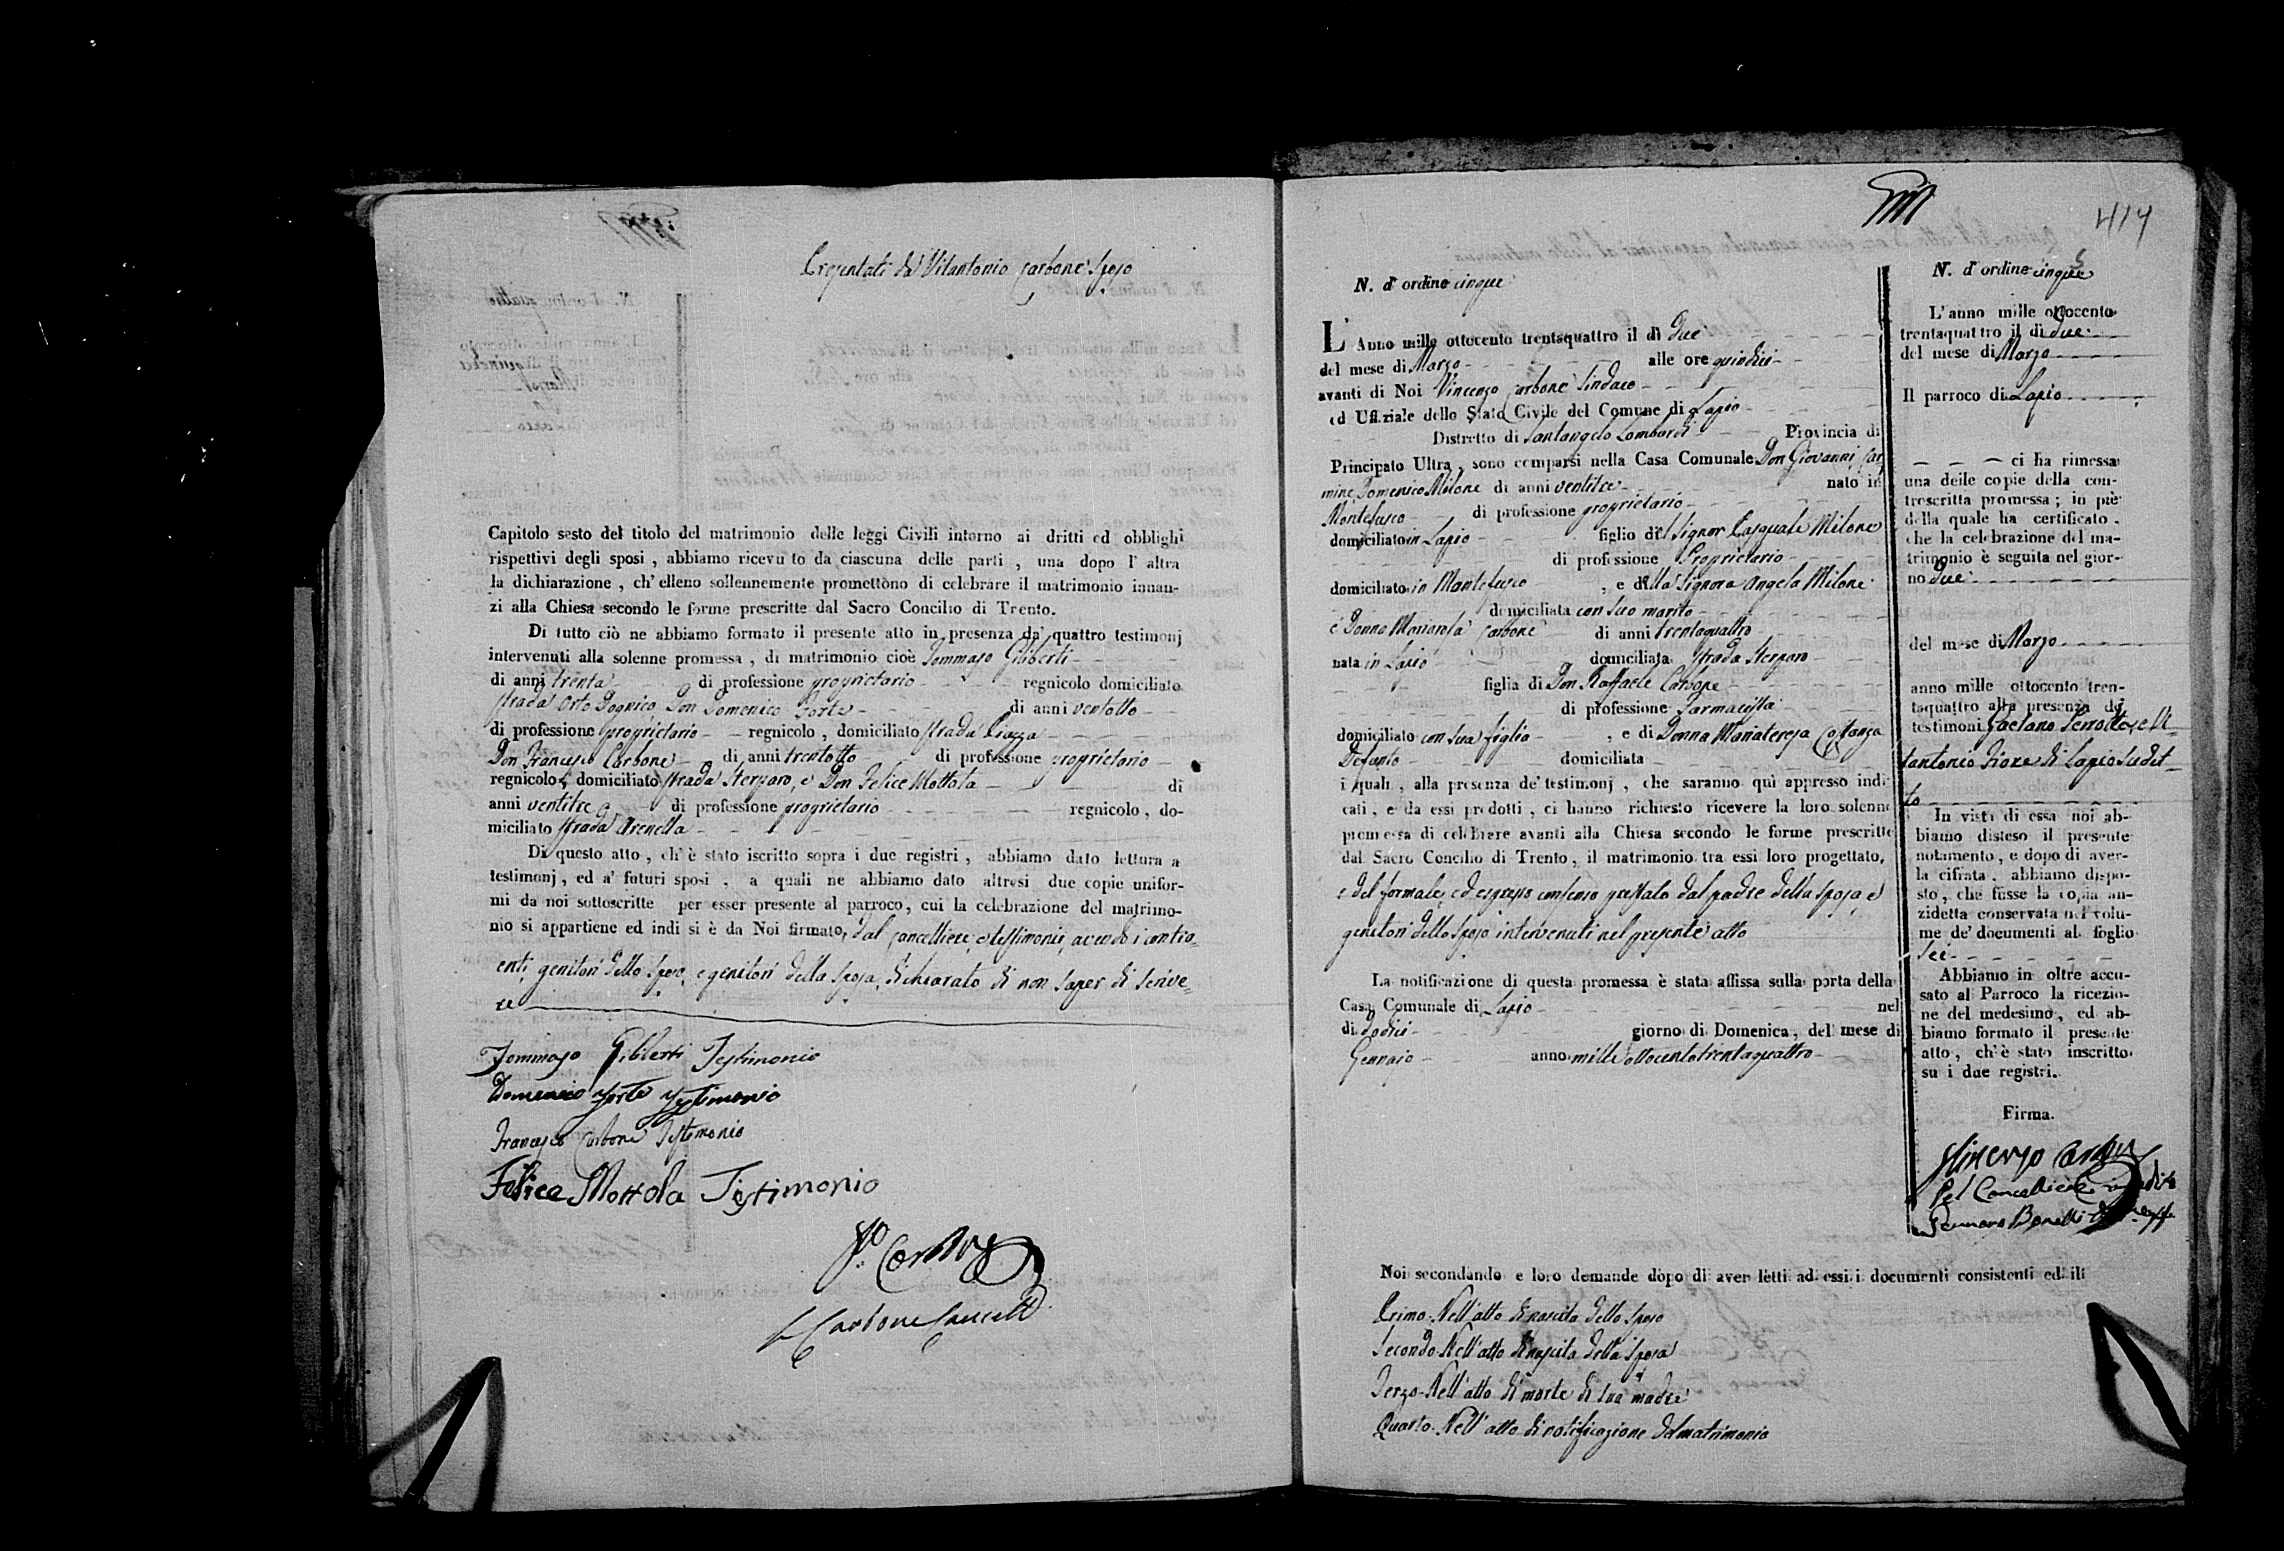 Presentati da Vitantonio Carbone Sposo
Capitolo sesto del titolo del matrimonio delle leggi Civili intorno ai dritti ed obblighi
rispettivi degli sposi , abbiamo ricevuto da ciascuna delle parti , una dopo l' altra
la dichiarazione , ch' elleno sollennemente promettono di celebrare il matrimonio innan-
zi alla Chiesa secondo le forme prescritte dal Sacro Concilio di Trento.
Di tutto ciò ne abbiamo formato il presente atto in presenza da' quattro testimonj
intervenuti alla solenne promessa , di matrimonio cioè Tommaso Giliberti
di anni trenta di professione proprietario regnicolo domiciliato
strada Orto Don Domenico Forte di anni ventotto
di professione proprietario regnicolo , domiciliato strada Piazza
Don Francesco Carbone di anni trentotto di professione proprietario
regnicolo, domiciliato strada Sterparo, e Don Felice Mottola di
anni ventitre di professione proprietario regnicolo , do-
miciliato strada Arenella
Di questo atto , ch' è stato iscritto sopra i due registri , abbiamo dato lettura a
testimonj , ed a' futuri sposi , a quali ne abbiamo dato altresi due copie unifor-
mi da noi sottoscritte per esser presente al parroco, cui la celebrazione del matrimo-
nio si appartiene ed indi si è da Noi firmato, dal Cancelliere, e testimonii, avendo i contra-
enti, genitori dello sposo, e genitori della sposa, dichiarato di non saper di scrive-
re
Tommaso Giliberti Testimonio
Domenico Forte Testimonio
Francesco Carbone Testimonio
Felice Mottola Testimonio
Carbone Cancell
414
N. d' ordine cinque
L' Anno mille ottocento trentaquattro il dì due
del mese di Marzo alle ore quindici
avanti di Noi Vincenzo Carbone Sindaco
ed Ufiziale dello Stato Civile del Comune di Lapio
Distretto di Santangelo Lombardi Provincia di
Principato Ultra , sono comparsi nella Casa Comunale Don Giovanni Car-
mine Domenico Milone di anni ventitre nato in
Montefusco di professione proprietario
domiciliato in Lapio figlio del Signor Pasquale Milone
di professione Proprietario
domiciliato in Montefusco , e della Signora Angela Milone
domiciliata con suo marito
e Donna Carbone di anni trentaquattro
nata in Lapio domiciliata strada Sterparo
figlia di Don Raffaele Carbone
di professione Farmacista
domiciliato con sua figlia , e di Donna Mariateresa Costanza
Defunta domiciliata
i quali , alla presenza de' testimonj , che saranno quì appresso indi-
cati , e da essi prodotti , ci hanno richiesto ricevere la loro solenne
promessa di celebrare avanti alla Chiesa secondo le forme prescritte
dal Sacro Concilio di Trento, il matrimonio tra essi loro progettato,
e del formale, ed espresso consenso prestato dal padre della sposa, e
genitori dello sposo intervenuti nel presente atto
La notificazione di questa promessa è stata affissa sulla porta della
Casa Comunale di Lapio nel
dì dodici giorno di Domenica, del mese di
Gennajo anno mille ottocento trentaquattro
Noi secondando e loro demande dopo di aver letti ad essi i documenti consistenti ed ili
Primo. Nell' atto di nascita dello sposo
Secondo. Nell' atto di nascita della sposa
Terzo. Nell' atto di morte di sua madre
Quarto. Nell' atto di notificazione del matrimonio
5
N. d' ordine cinque
L' anno mille ottocento
trentaquattro il dì due
del mese di Marzo
Il parroco di Lapio
ci ha rimessa
una delle copie della con-
troscritta promessa ; in piè
della quale ha certificato .
che la celebrazione del ma-
trimonio è seguita nel gior-
no due
del mese di Marzo
anno mille ottocento tren-
taquattro alla presenza de'
testimonj Gaetano e Vi-
tantonio Fiore di Lapio suddet-
to
In vista di essa noi ab-
biamo disteso il presente
notamento, e dopo di aver-
la cifrata, abbiamo dispo-
sto, che fusse la copia an-
zidetta conservata nel volu-
me de' documenti al foglio
sei
Abbiamo in oltre accu-
sato al Parroco la ricezio-
ne del medesimo, ed ab-
biamo formato il presente
atto, ch' è stato inscritto
su i due registri.
Firma.
Vincenzo Carbone
Pel Cancelliere
Gennaro Bonelli